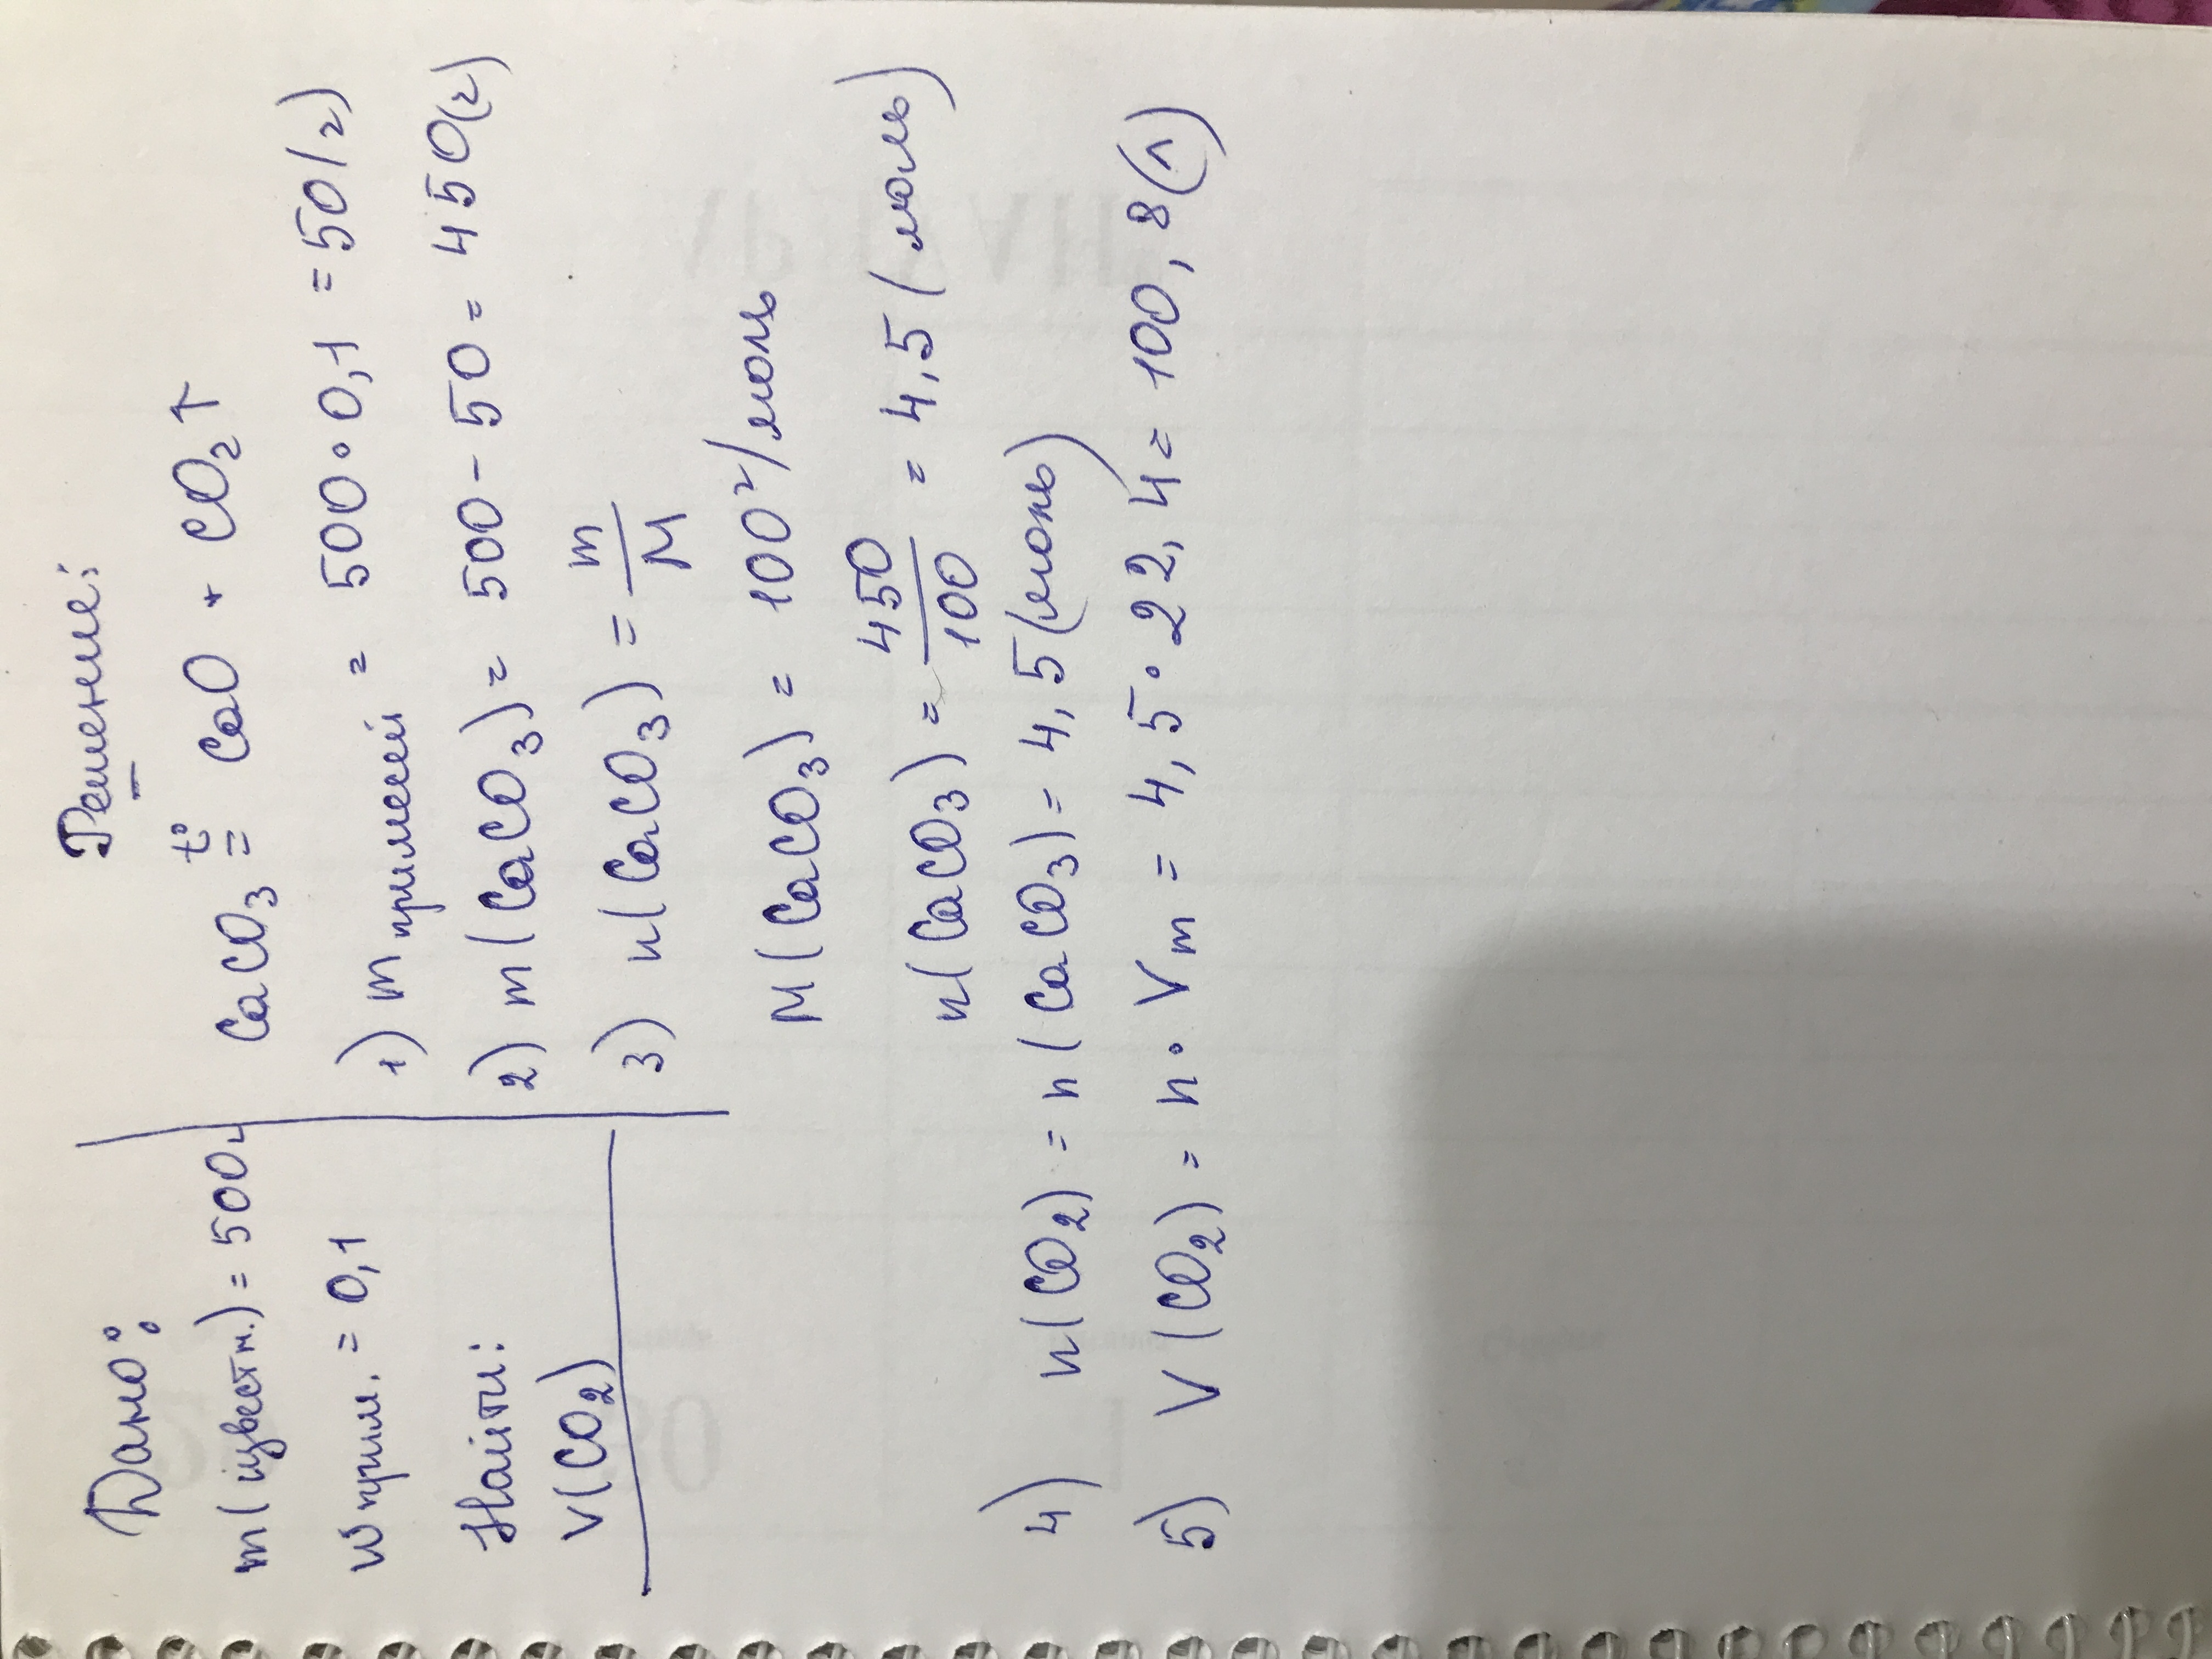 Дано:
m(известн.) = 500г
w прим. = 0,1
Найти:
V(CO₂)
Решение:
CaCO₃ t°= CaO + CO₂↑
1) m примесей = 500∘0,1 = 50(г)
2) m(CaCO₃) = 500 - 50 = 450(г)
3) n(CaCO₃) = m/M
M(CaCO₃) = 100 г/моль
n(CaCO₃) = 450/100 = 4,5 (моль)
4) n(CO₂) = n(CaCO₃) = 4,5 (моль)
5) V(CO₂) = n · Vm = 4,5 · 22,4 = 100,8(л)